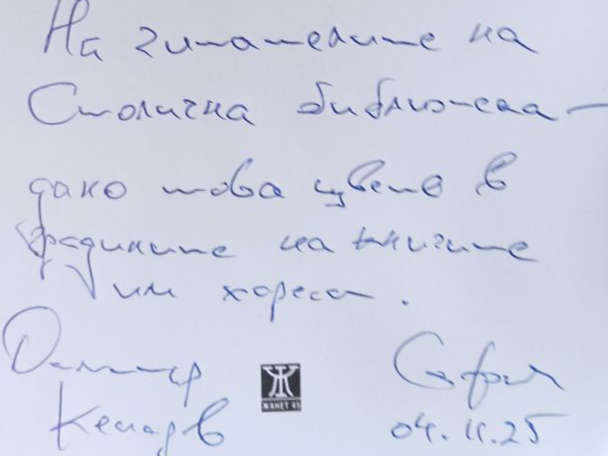 На читателите на
Столична библиотека –
дано това цвете в
градините на книгите
им хареса.
Димитър
Кенаров
ЖАНЕТ 45
София
04.11.25